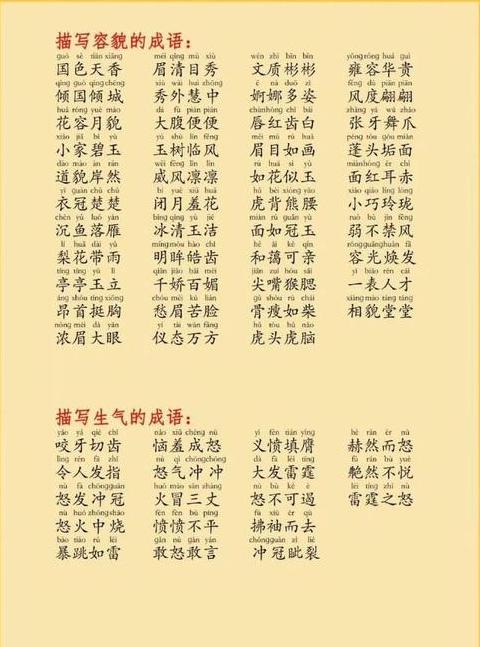 描写容貌的成语：
guó sè tiān xiāng méi qīng mù xiù wén zhì bīn bīn yōng róng huá guì
国色天香 眉清目秀 文质彬彬 雍容华贵
qīng guó qīng chéng xiù wài huì zhōng ē nuó duō zī fēng dù piān piān
倾国倾城 秀外慧中 婀娜多姿 风度翩翩
huā róng yuè mào dà fù pián pián chún hóng chǐ bái zhāng yá wǔ zhǎo
花容月貌 大腹便便 唇红齿白 张牙舞爪
xiǎo jiā bì yù yù shù lín fēng méi mù rú huà péng tóu gòu miàn
小家碧玉 玉树临风 眉目如画 蓬头垢面
dào mào àn rán wēi fēng lǐn lǐn rú huā sì yù miàn hóng ěr chì
道貌岸然 威风凛凛 如花似玉 面红耳赤
yī guān chǔ chǔ bì yuè xiū huā hǔ bèi xióng yāo xiǎo qiǎo líng lóng
衣冠楚楚 闭月羞花 虎背熊腰 小巧玲珑
chén yú luò yàn bīng qīng yù jié miàn rú guān yù ruò bù jīn fēng
沉鱼落雁 冰清玉洁 面如冠玉 弱不禁风
lí huā dài yǔ míng móu hào chǐ hé ǎi kě qīn róng guāng huàn fā
梨花带雨 明眸皓齿 和蔼可亲 容光焕发
tíng tíng yù lì qiān jiāo bǎi mèi jiān zuǐ hóu sāi yì biǎo rén cái
亭亭玉立 千娇百媚 尖嘴猴腮 一表人才
áng shǒu tǐng xiōng chóu méi kǔ liǎn gǔ shòu rú chái xiàng mào táng táng
昂首挺胸 愁眉苦脸 骨瘦如柴 相貌堂堂
nóng méi dà yǎn yí tài wàn fāng hǔ tóu hǔ nǎo
浓眉大眼 仪态万方 虎头虎脑
描写生气的成语：
yǎo yá qiè chǐ nǎo xiū chéng nù yì fèn tián yīng hè rán ér nù
咬牙切齿 恼羞成怒 义愤填膺 赫然而怒
lìng rén fà zhǐ nù qì chōng chōng dà fā léi tíng fú rán bú yuè
令人发指 怒气冲冲 大发雷霆 艴然不悦
nù fà chōng guān huǒ mào sān zhàng nù bù kě è léi tíng zhī nù
怒发冲冠 火冒三丈 怒不可遏 雷霆之怒
nù huǒ zhōng shāo fèn fèn bù píng fú xiù ér qù
怒火中烧 愤愤不平 拂袖而去
bào tiào rú léi gǎn nù gǎn yán chōng guān zì liè
暴跳如雷 敢怒敢言 冲冠眦裂